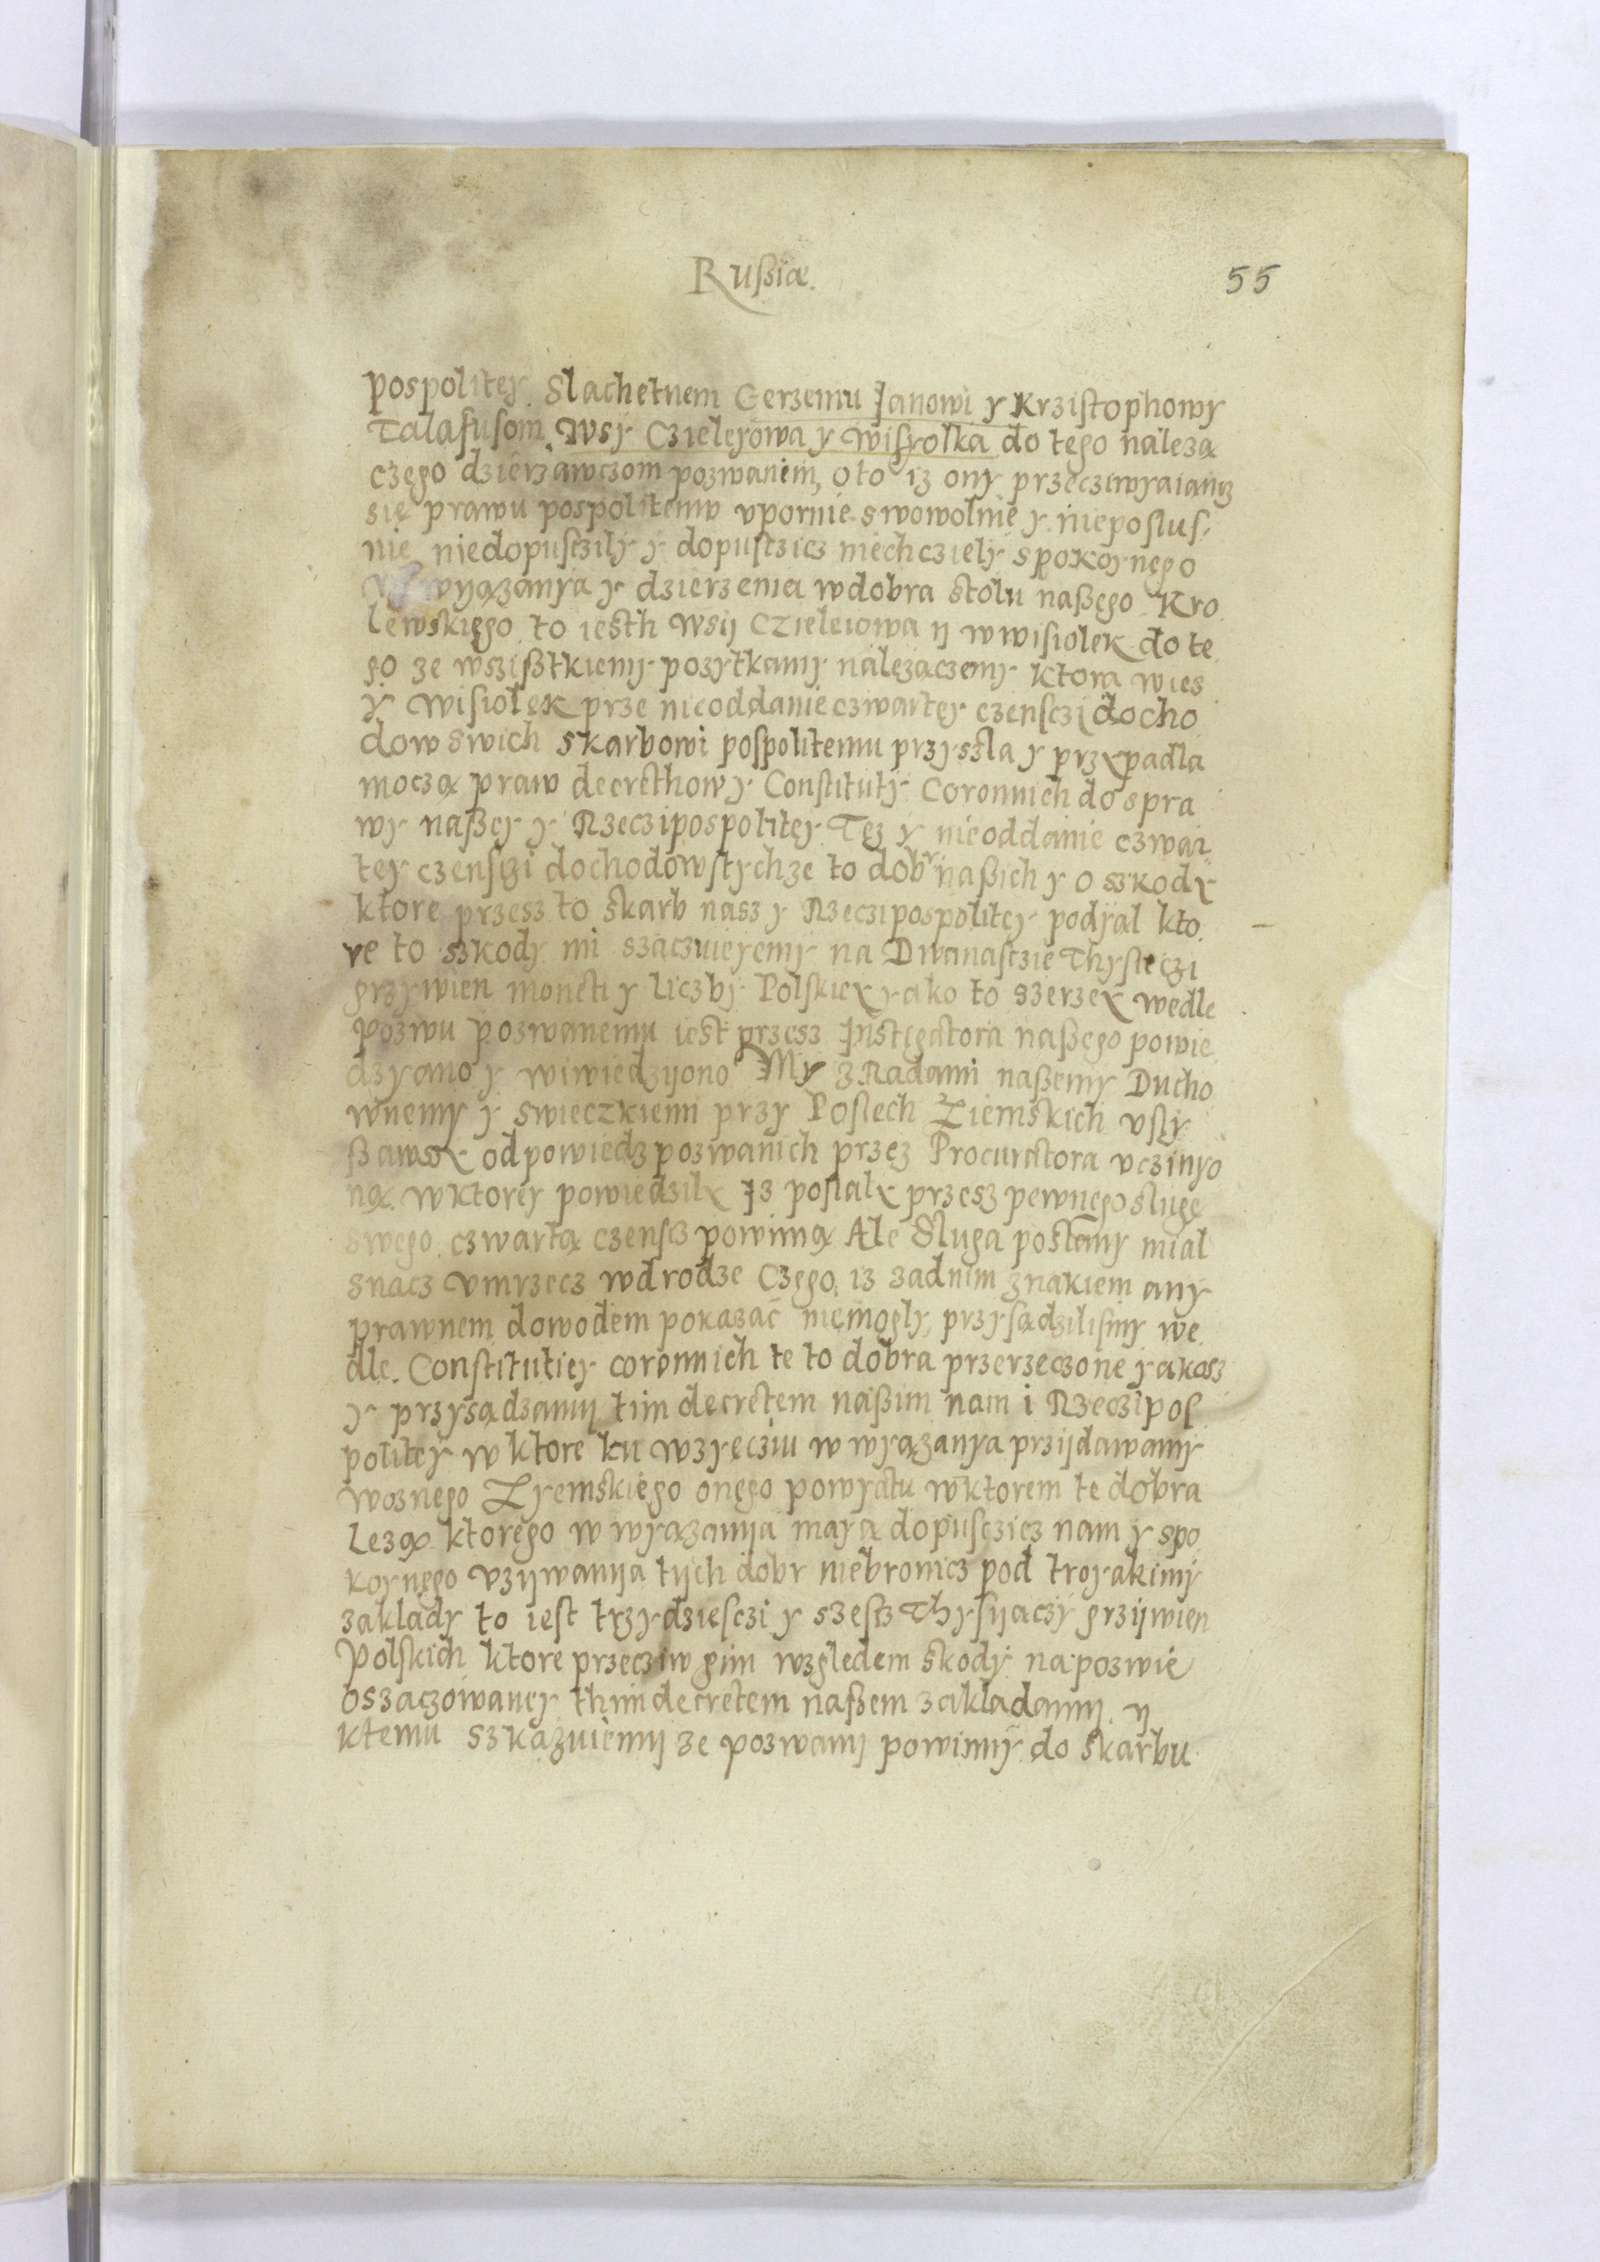 Rußiæ.
55
pospolitey. Slachetnem Gerzemu Janowi y Krzistophowy
Talafusom Wsy Czieleyowa y Wisyolka do tego należą
czego dzierzawczom pozwanem, o to iz ony przecziwyaiancz
się prawu pospolitemu vpornie swowolnie y nieposlus
nie niedopusczily y dopusczicz niechcziely spokoynego
wyązanya y dzierzenia w dobra stolu naßego Kro
lewskiego to iesth Wsij Czieleiowa ÿ w wisiolek do te
go ze wszißtkiemy pozytkamy nalezaczemy ktora wies
y Wisiolek prze nieoddanie czwartey czensczi docho
dow swich skarbowi pospolitemu przyszla y przypadla
moczą praw decrethow y Constituty Coronnich do spra
wy naßey y Rzeczipospolitey Tęz y nieoddanie czwar
tey czensczi dochodow stych ze to dobr naßich y o szkody
ktore przesz to skarb nasz y Rzeczipospolitey podyal kto
re to szkody mi szaczuieyemy na Dwanasczie Thysieczi
grzywien moneti y liczby Polskiey yako to szerzey wedle
pozwu pozwanemu iest przesz Instigatora naßego powie
dzyano y wiwiedzyono My z Radami naßemy Ducho
wnemy y swieczkiemi przy Poslech Ziemskich vsly
ßawsy odpowiedz pozwanich przez Procuratora vczinyo
ną w ktorey powiedzily Iz poslaly przesz pewnego sluge
swego czwartą czenscz powinną Ale Sluga postemy mial
snacz vmrzecz w drodze Czego iz zadnim znakiem any
prawnem dowodem pokazać niemogly, przysądzilismy we
dle Constitutiey coronnich te to dobra przerzeczone yakosz
y przysądzamy tim decretem naßim nam i Rzeczipos
politey w ktore ku wzyęcziu w wyązanya przijdawamy
woznego Zyemskiego onego powyatu w ktorem te dobra
lezą ktorego w wyązanija mayą dopusczicz nam y spo
koynego vzijwanija tych dobr niebronicz pod troyakimy
zaklady to iest trzydziesczi y szescz Thysijaczy grzijwien
Polskich ktore przecziw gim względem skody na pozwie
oszaczowaney thim decretem naßem zakladamy ÿ
ktemu szkazuiemij ze pozwany powinny do skarbu